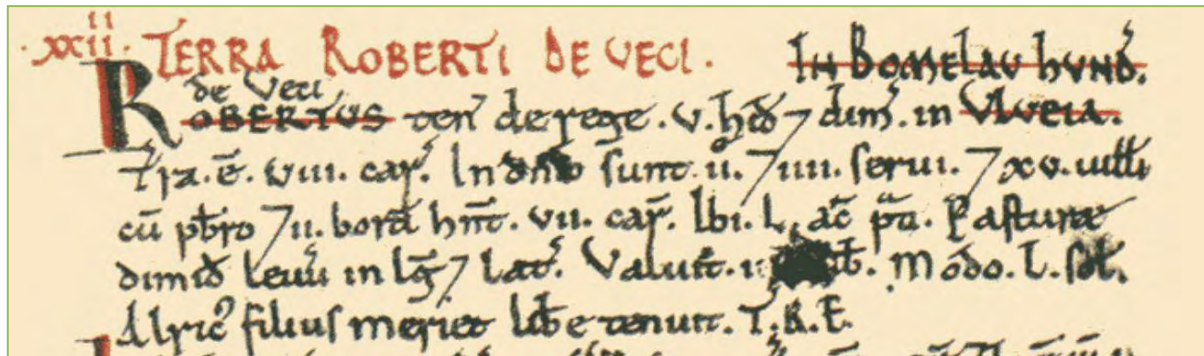 .xxii. TERRA ROBERTI DE VECI. IN BOMELAU HUND̄.
de Veci
ROBERTUS ten̄ de rege. v. hid̄ 7 dim̄. in VLVEIA.
Tr̄a. ē. viii. car̄. In dn̄io sunt. ii. 7 iiii. serui. 7 xv. uill̄i
cū pb̄ro 7 ii. bord̄ hn̄t. vii. car̄. Ibi. L. ac̄ p̄ti. Pasturæ
dimid̄ leuu̅ in lḡ 7 lat̄. Valuit. Modo. L. sol̄.
Alric̄ filius meriet lib̄e tenuit. T.R.E.